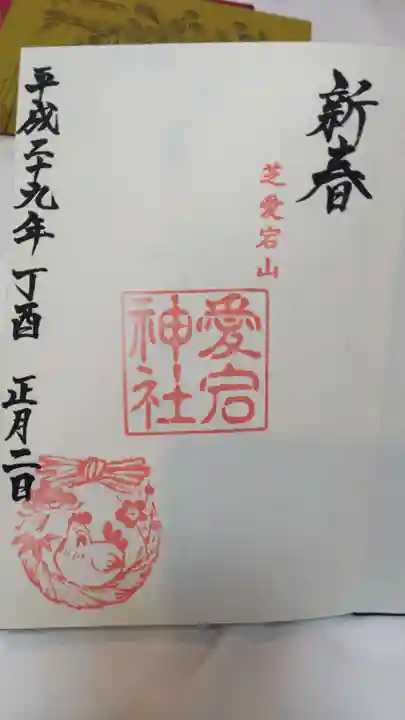 新春
芝愛宕山
愛宕
神社
平成二十九年丁酉 正月二日